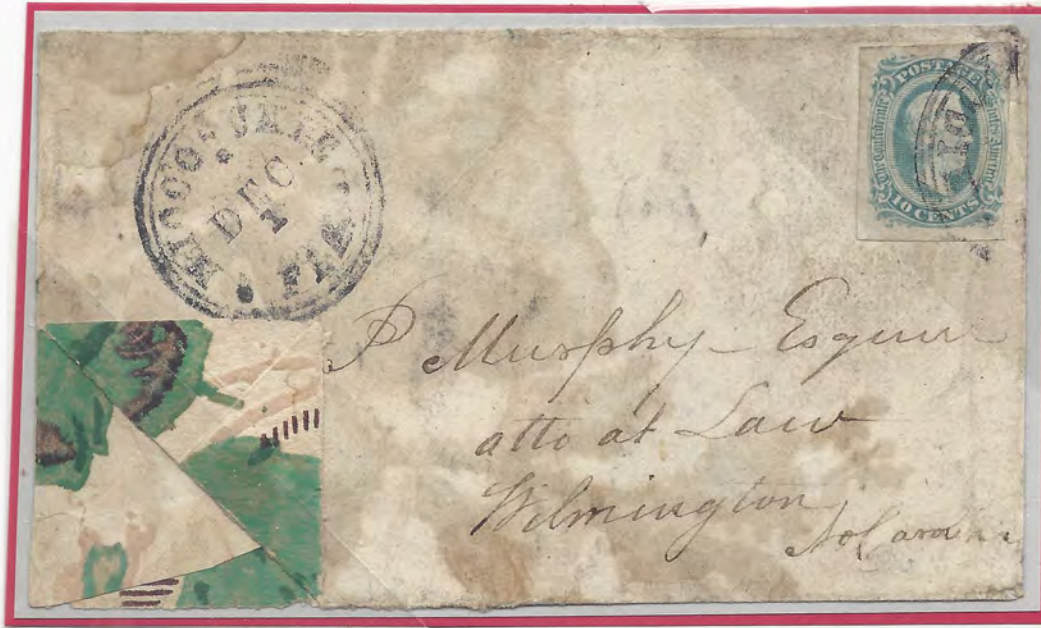 MICCOSUKIE
DEC
1
FLA.
POSTAGE
The Confederate
States America
10 CENTS
P Murphy Esquire
atto at Law
Wilmington
No Carolina